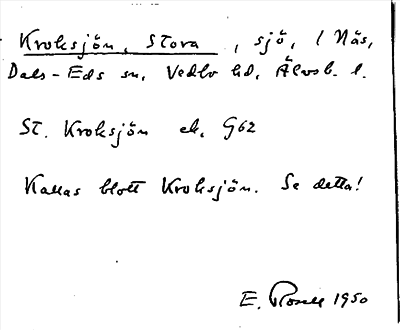 Kroksjön, Stora, sjö, l Näs,
Dals-Eds sn, Vedbo hd, Älvsb. l.
St. Kroksjön ek. G62
Kallas blott Kroksjön. Se detta!
E. Rosell 1950